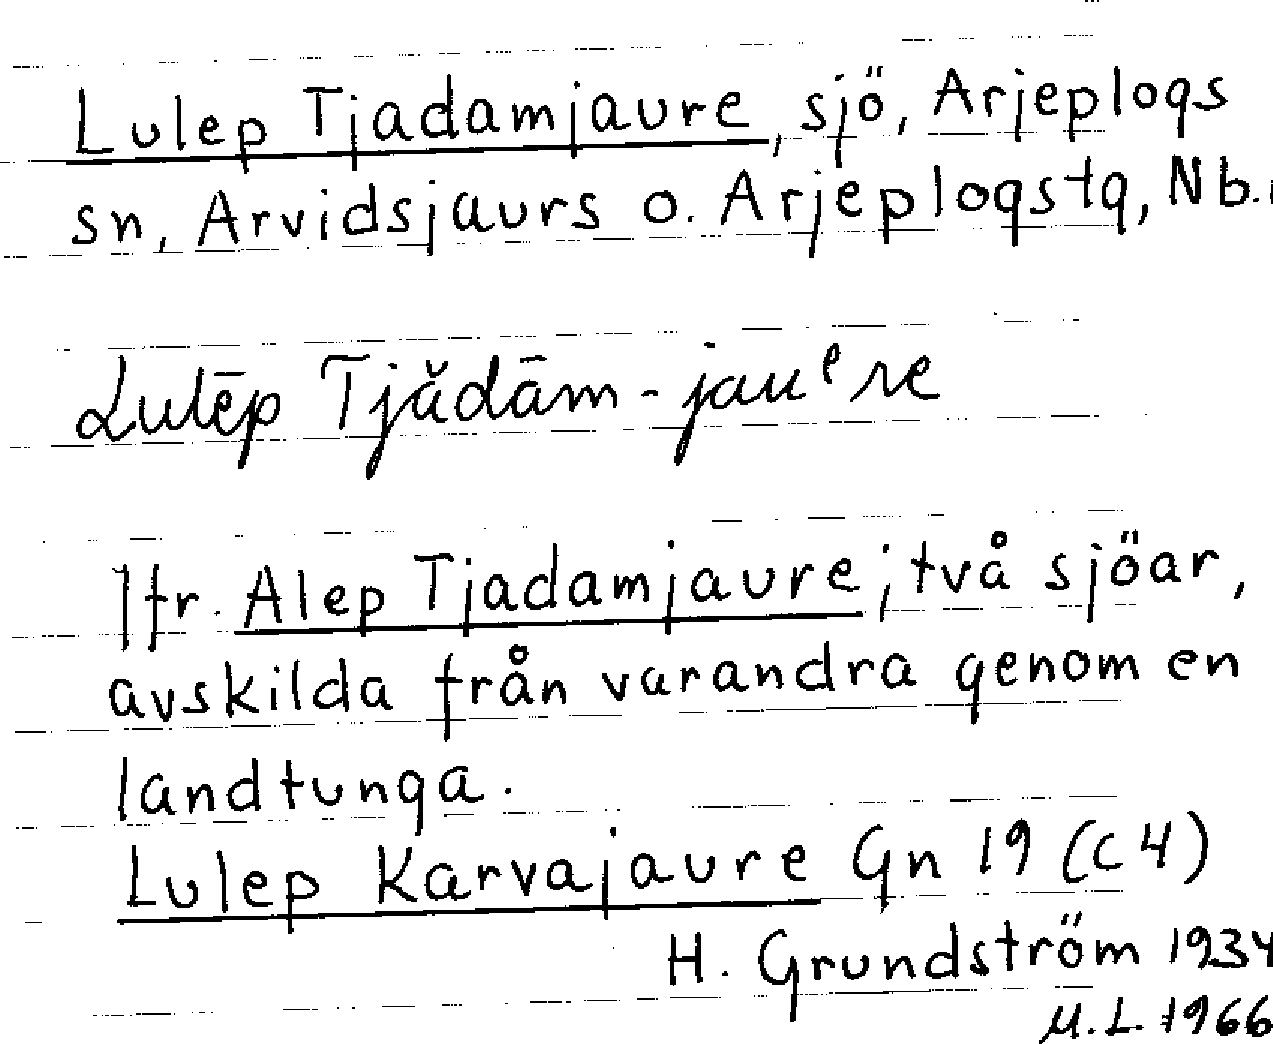 Lulep Tjadamjaure, sjö, Arjeplogs
sn, Arvidsjaurs o. Arjeplogstg, Nb.
Lulēp Tjǎdām-jauᵉre
Jfr. Alep Tjadamjaure; två sjöar,
avskilda från varandra genom en
landtunga.
Lulep Karvajaure Gn 19 (C4)
H. Grundström 1934
M.L. 1966